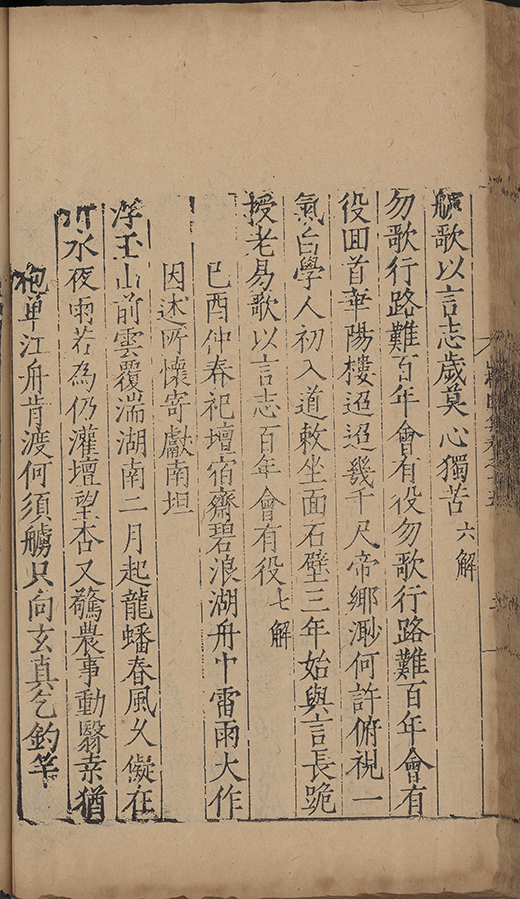 艫歌以言志歲莫心獨苦六解
勿歌行路難百年會有役勿歌行路難百年會有
役囬首華陽樓迢迢幾千尺帝鄉渺何許俯視一
氣白學人初入道敕坐面石壁三年始與言長跪
授老易歌以言志百年會有役七解
已酉仲春祀壇宿齋碧浪湖舟中雷雨大作
因述所懷寄獻南坦
浮玉山前雲覆湍湖南二月起龍蟠春風久儗在
水夜雨若為仍灌壇望杏又驚農事動翳桒猶
袍單江舟肯渡何須艣只向玄真乞釣竿